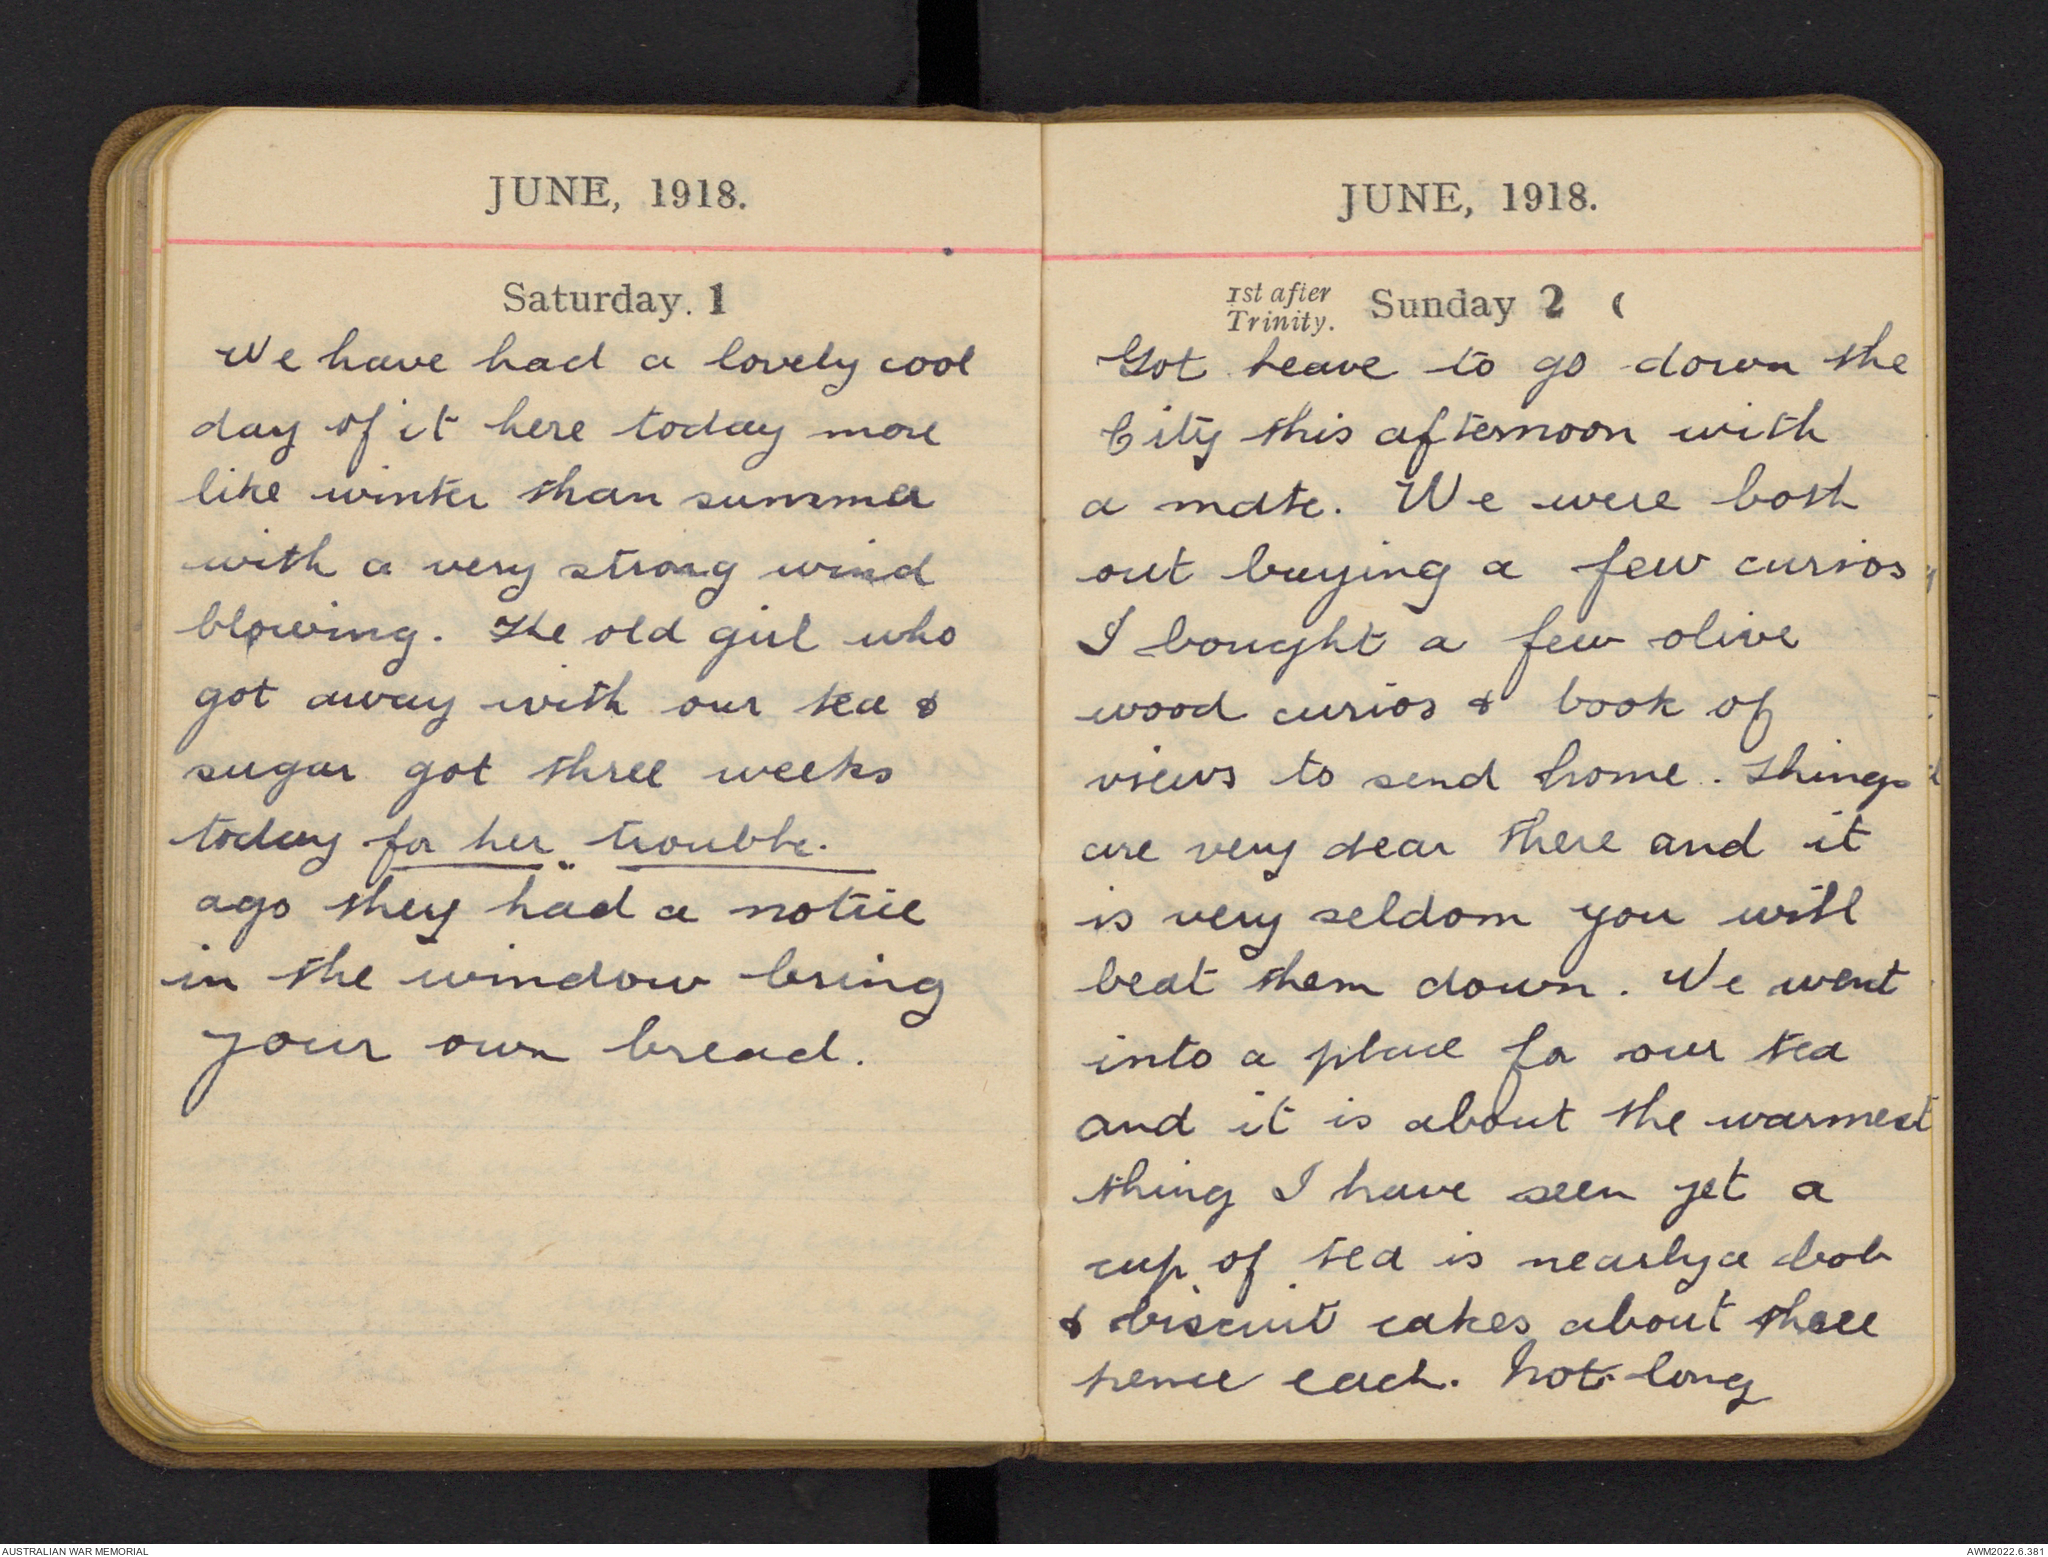 JUNE, 1918.
Saturday. 1
We have had a lovely cool
day of it here today more
like winter than summer
with a very strong wind
blowing. The old girl who
got away with our tea &
sugar got three weeks
today for her trouble.
ago they had a notice
in the window bring
your own bread.
JUNE, 1918.
1st after
Trinity.
Sunday 2 (
Got leave to go down the
City this afternoon with
a mate. We were both
out buying a few curios
I bought a few olive
wood curios & book of
views to send home. Things
are very dear there and it
is very seldom you will
beat them down. We went
into a place for our tea
and it is about the warmest
thing I have seen yet a
cup of tea is nearly a bob
& biscuit cakes about three
pence each. Not long
AUSTRALIAN WAR MEMORIAL
AWM2022.6.381